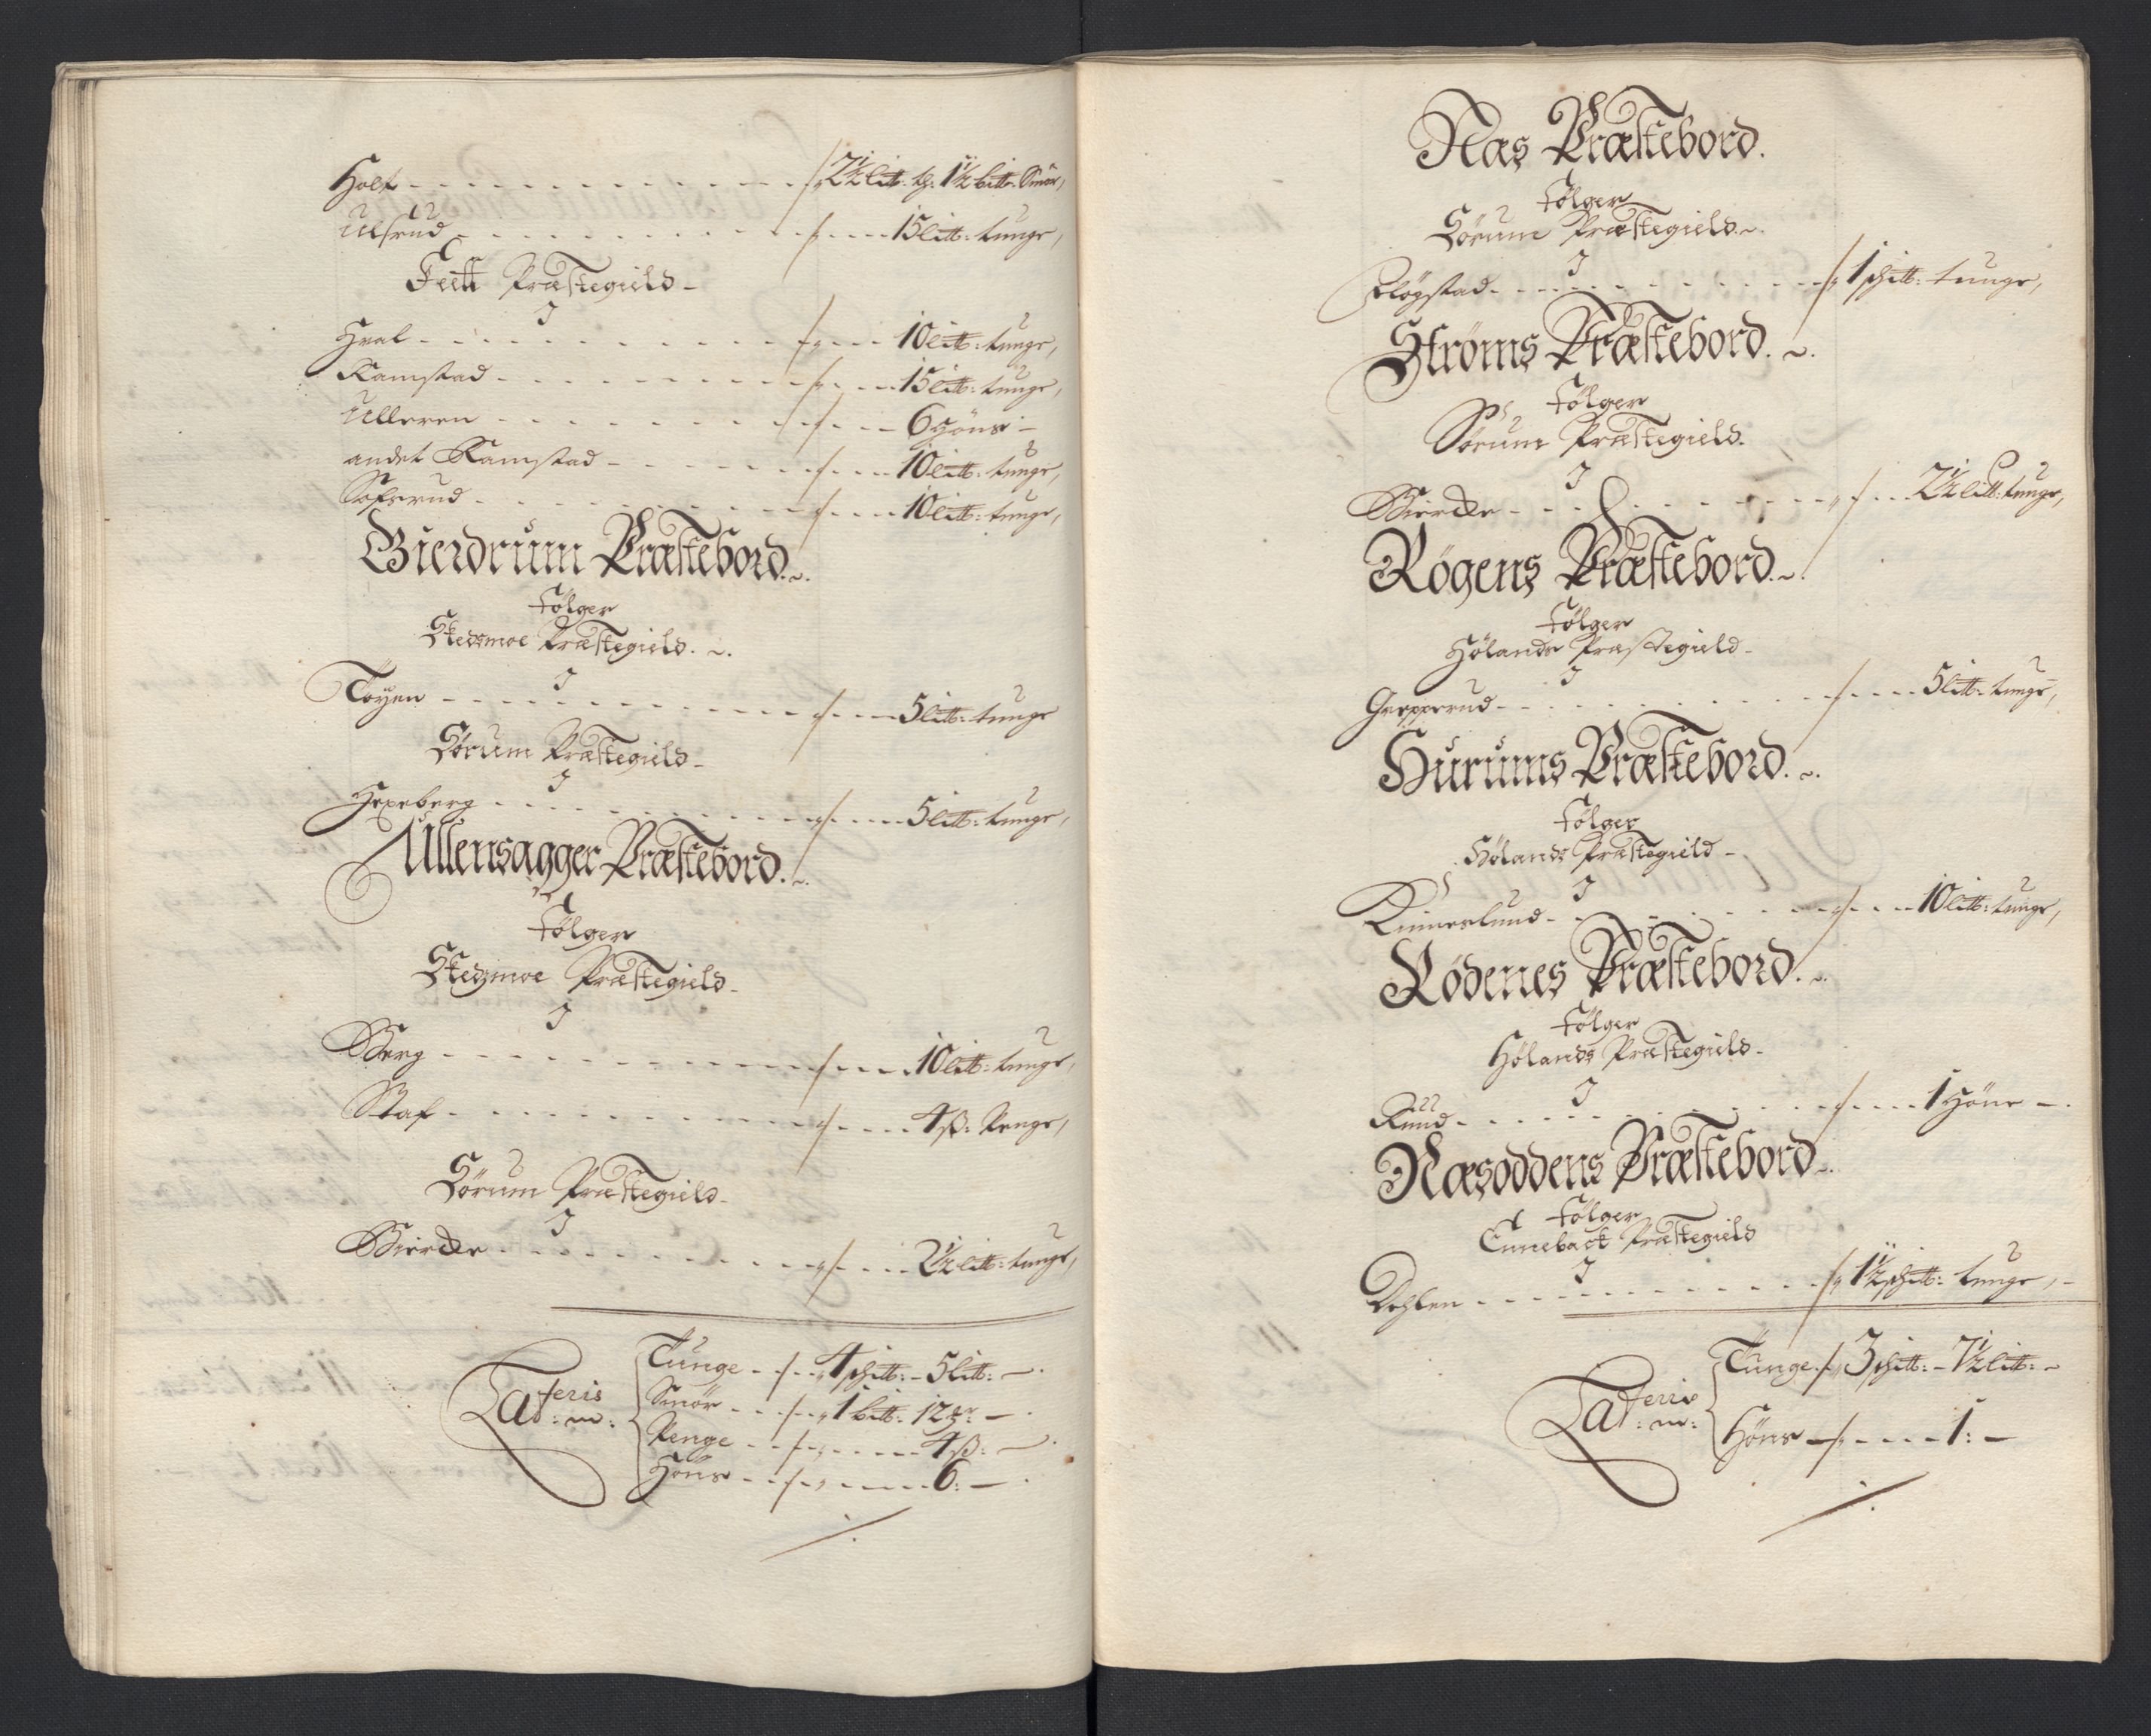 Holt - - - - 2½ litt: tg: 1½ bitt: Smör,
Ulsrud - - - - 15 litt: tunge,
Feitt Præstegield -
J
Hval - - - - 10 litt: tunge,
Ramstad - - - - 15 litt: tunge,
Ulleren - - - - 6 Höns -
andet Ramstad - - - - 10 litt: tunge,
- - - - 10 litt: tunge,
Gierdrum Præstebord.
Fölger
Skedsmoe Præstegield.
J
Töyen - - - - 5 litt: tunge
Sörum Præstegield -
J
Hexeberg - - - - 5 litt: tunge,
Ullensagger Præstebord.
Fölger
Skedsmoe Præstegield -
J
Berg - - - - 10 litt: tunge,
Staf - - - - 4 ß: Penge,
Sörum Præstegield -
J
Biercke - - - - 2½ litt: tunge,
Lateris
Tunge - - 4 schitt: - 5 litt: -
Smör - - 1 bitt: 12 -
Penge - - - - 4 ß: -
Höns - - - - 6: -
Næs Præstebord.
Fölger
Sörum Præstegield.
J
Flögstad - - - - 1 schitt: tunge,
Ströms Præstebord.
Fölger
Sörum Præstegield.
J
Biercke - - - - 2½ litt: tunge,
Rögens Præstebord.
Fölger
Hölands Præstegield -
J
Grepperud - - - - 5 litt: tunge,
Hurums Præstebord.
Fölger
Hölands Præstegield -
J
Kinneslund - - - - 10 litt: tunge,
Rödenes Præstebord.
Fölger
Hölands Præstegield -
J
Rund - - - - 1 Höne -
Næsoddens Præstebord
Fölger
Enneback Præstegield
J
Dahlen - - - - 1½ schitt: tunge, -
Lateris
Tunge - 3 schitt: - 7½ litt: -
Höns - - - - 1: -